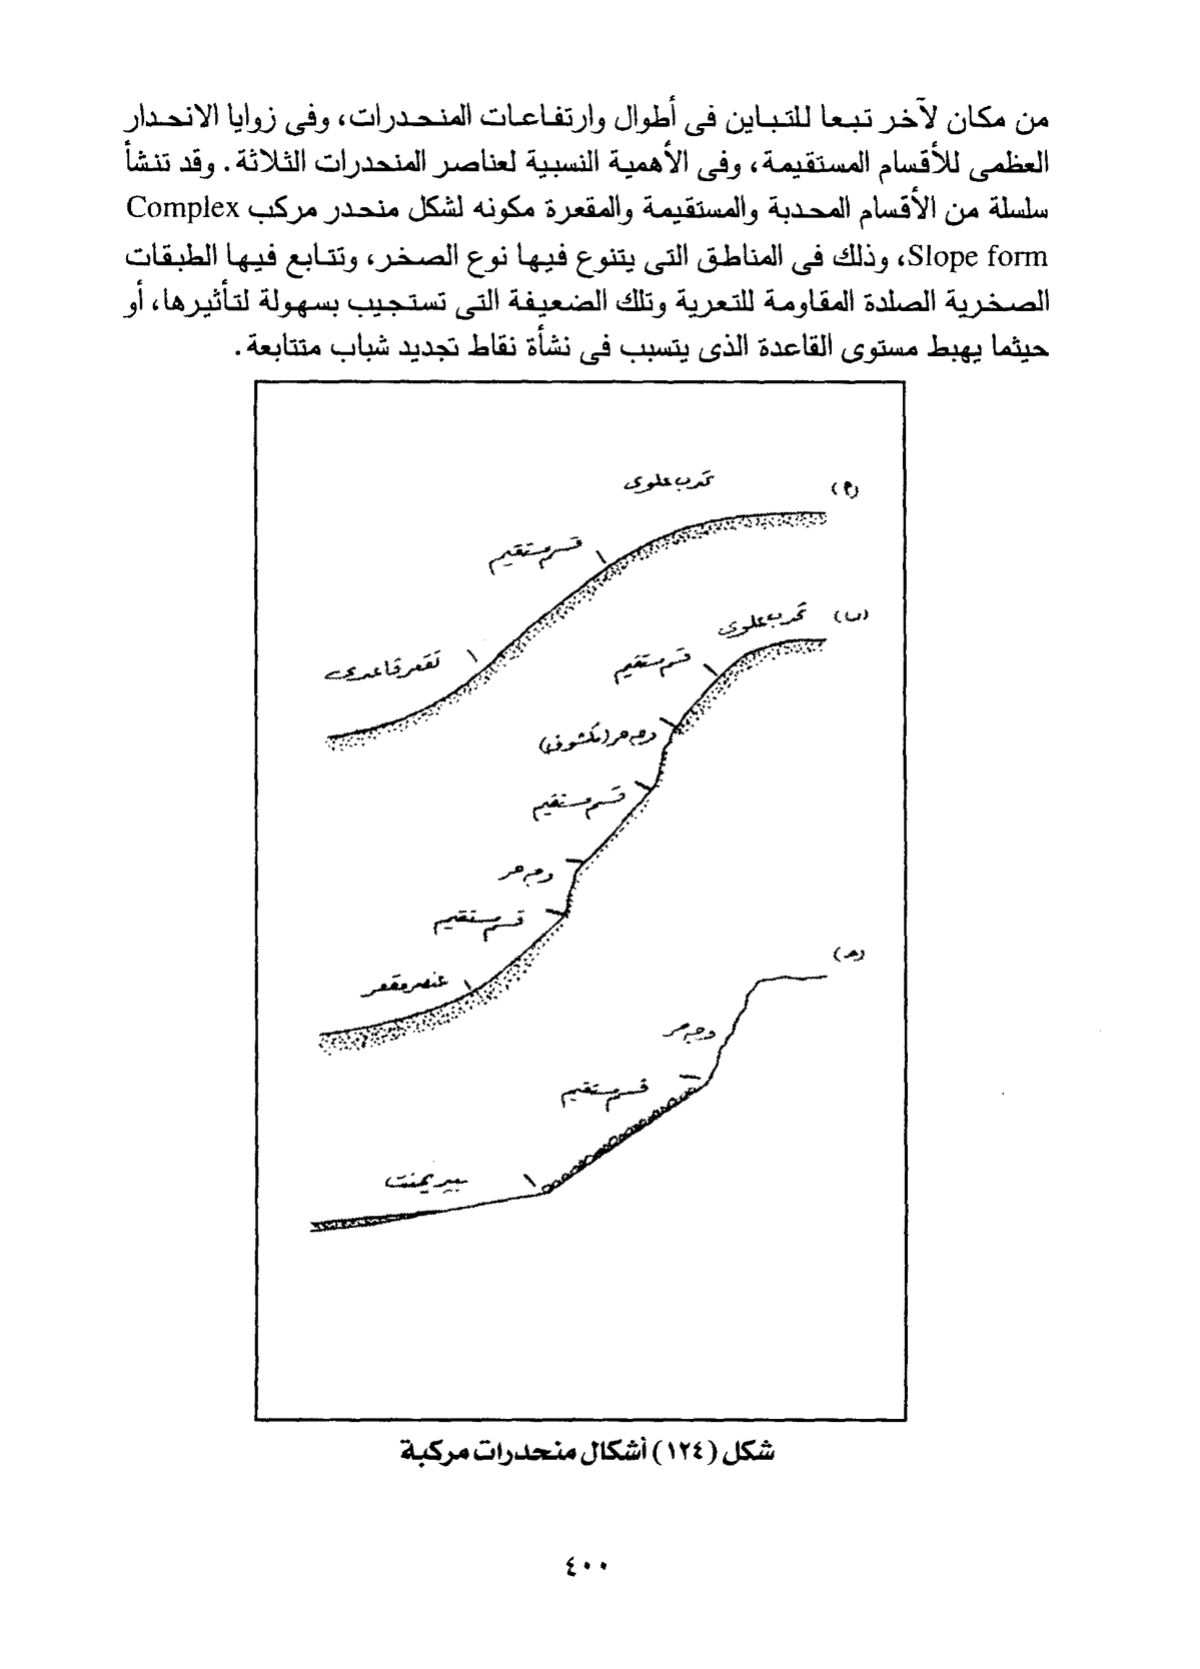 من مكان لآخر تبعا للتباين فى أطوال وارتفاعات المنحدرات، وفى زوايا الانحدار
العظمى للأقسام المستقيمة، وفى الأهمية النسبية لعناصر المنحدرات الثلاثة. وقد تنشأ
سلسلة من الأقسام المحدبة والمستقيمة والمقعرة مكونه لشكل منحدر مركب Complex
Slope form، وذلك فى المناطق التى يتنوع فيها نوع الصخر، وتتابع فيها الطبقات
الصخرية الصلدة المقاومة للتعرية وتلك الضعيفة التى تستجيب بسهولة لتأثيرها، أو
حيثما يهبط مستوى القاعدة الذى يتسبب فى نشأة نقاط تجديد شباب متتابعة.
(أ)
تحدب علوى
قسم مستقيم
تقعر قاعدى
(ب)
تحدب علوى
قسم مستقيم
وجه حر (مكشوف)
قسم مستقيم
وجه حر
قسم مستقيم
عنصر مقعر
(جـ)
وجه حر
قسم مستقيم
بيديمنت
شكل (١٢٤) أشكال منحدرات مركبة
٤٠٠